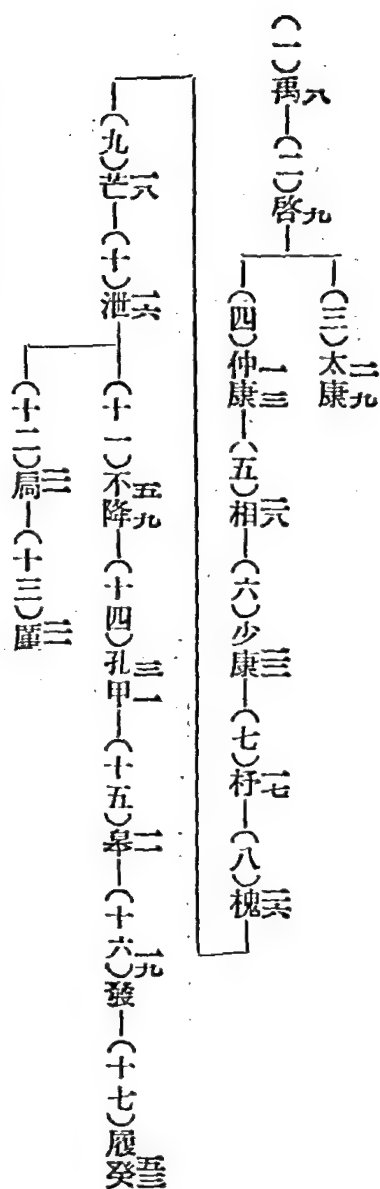 (一)禹八—(二)啓九
(三)太康二九
(四)仲康一三—(五)相二八—(六)少康—(七)杼一七—(八)槐二六
(九)芒一八—(十)泄一六
(十一)不降五九—(十四)孔甲三一—(十五)皋一一—(十六)發一九—(十七)履癸
(十二)局二一—(十三)廑二一